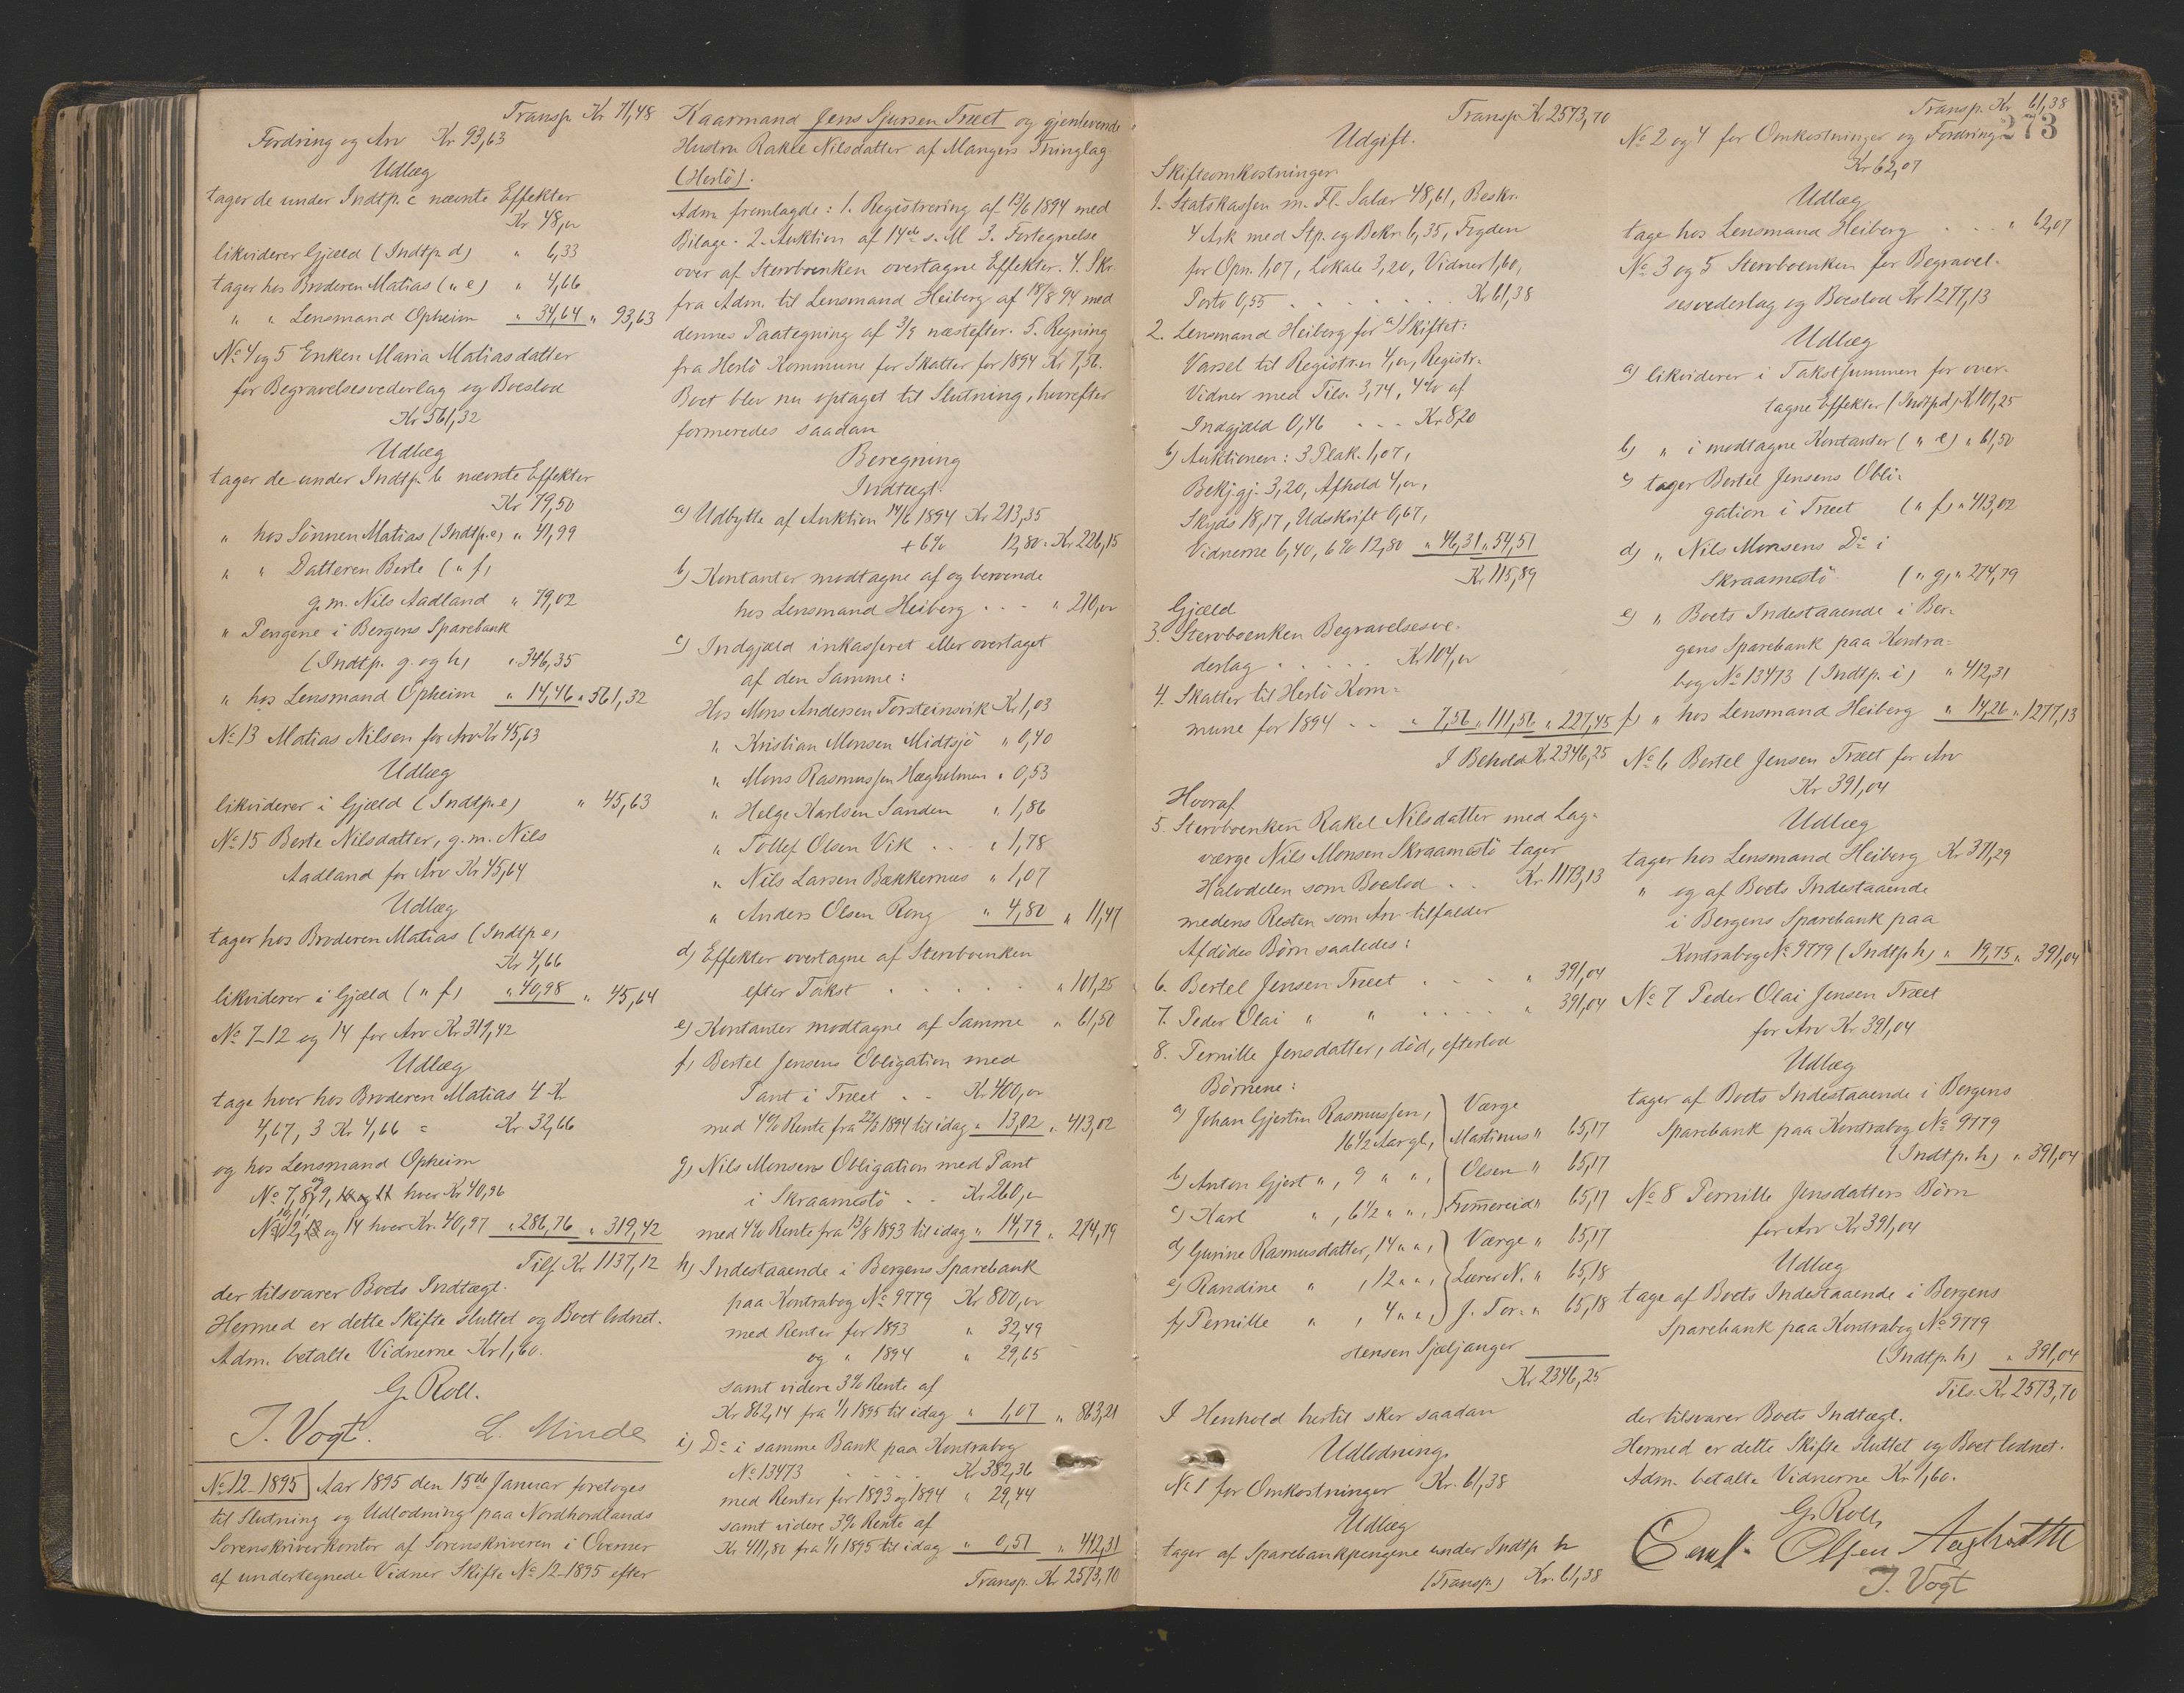 Transp. Kr 71,48
Fordring og Arv Kr 93,63
Udlæg
tager de under Indtp. c nævnte Effekter
Kr 48,00
likviderer Gjæld (Indtp. d) " 6,33
tager hos Broderen Matias (" e) " 4,66
" " Lensmand Opheim " 34,64 " 93,63
No 4 og 5 Enken Maria Matiasdatter
for Begravelsesvederlag og Boeslod
Kr 561,32
Udlæg
tager de under Indtp. b nævnte Effekter
Kr 79,50
" hos Sönnen Matias (Indtp. e) " 41,99
" " Datteren Berte (" f)
g. m. Nils Aadland " 79,02
" Pengene i Bergens Sparebank
(Indtp. g. og h) " 346,35
" hos Lensmand Opheim " 14,46 " 561,32
No 13 Matias Nilsen for Arv Kr 45,63
Udlæg
likviderer i Gjæld (Indtp. e) " 45,63
No 15 Berte Nilsdatter, g. m. Nils
Aadland for Arv Kr 45,64
Udlæg
tager hos Broderen Matias (Indtp e)
Kr 4,66
likviderer i Gjæld (" f) " 40,98 " 45,64
No 7-12 og 14 for Arv Kr 319,42
Udlæg
tage hver hos Broderen Matias 4 Kr
4,67, 3 Kr 4,66 = Kr 32,66
og hos Lensmand Opheim
No 7, 8 og 9, hver Kr 40,96
No 10, 11, 12, og 14 hver Kr. 40,97 " 286,76 " 319,42
Tils. Kr 1137,12
der tilsvarer Boets Indtægt.
Hermed er dette Skifte sluttet og Boet lodnet.
Adm. betalte Vidnerne Kr 1,60.
G. Roll.
J. Vogt. L. Minde
No 12-1895 Aar 1895 den 15de Januar foretoges
til Slutning og Udlodning paa Nordhordlands
Sorenskriverkontor af Sorenskriveren i Overvær
af undertegnede Vidner Skifte No 12-1895 efter
Kaarmand Jens Sjursen Træet og gjenlevende
Hustru Rakel Nilsdatter af Mangers Thinglag
(Herlö).
Adm. fremlagde: 1. Registrering af 13/6 1894 med
Bilage. 2. Auktion af 14de s. M. 3. Fortegnelse
over af Stervboenken overtagne Effekter. 4. Skr.
fra Adm. til Lensmand Heiberg af 18/8 94 med
dennes Paategning af 3/9 næstefter. 5. Regning
fra Herlö Kommune for Skatter for 1894 Kr 7,56.
Boet blev nu optaget til Slutning, hvorefter
formeredes saadan
Beregning
Indtægt.
a) Udbytte af Auktion 14/6 1894 Kr 213,35
+ 6% 12,80 = Kr 226,15
b) Kontanter modtagne af og beroende
hos Lensmand Heiberg . . . " 210,00
c) Indgjæld inkasseret eller overtaget
af den Samme:
Hos Mons Andersen Torsteinsvik Kr 1,03
" Kristian Monsen Midtsjö " 0,40
" Mons Rasmussen Hægholmen " 0,53
" Helge Karlsen Sanden " 1,86
" Tollef Olsen Vik . . . " 1,78
" Nils Larsen Bækkernes " 1,07
" Anders Olsen Rong " 4,80 " 11,47
d) Effekter overtagne af Stervboenken
efter Takst . . . . . " 101,25
e) Kontanter modtagne af Samme " 61,50
f) Bertel Jensens Obligation med
Pant i Træet . . Kr 400,00
med 4% Rente fra 22/3 1894 til idag " 13,02 " 413,02
g) Nils Monsens Obligation med Pant
i Skraamestö . . Kr 260,00
med 4% Rente fra 13/8 1893 til idag " 14,79 " 274,79
h) Indestaaende i Bergens Sparebank
paa Kontrabog No 9779 Kr 800,00
med Renter for 1893 " 32,49
og " 1894 " 29,65
samt videre 3% Rente af
Kr 862,14 fra 1/1 1895 til idag " 1,07 " 863,21
i) Do i samme Bank paa Kontrabog
No 13473 . . . . Kr 382,36
med Renter for 1893 og 1894 " 29,44
samt videre 3% Rente af
Kr 411,80 fra 1/1 1895 til idag " 0,51 " 412,31
Transp. Kr 2573,70
Transp Kr 2573,70
Udgift.
Skifteomkostninger.
1. Statskassen m. Fl. Salær 48,61, Beskr.
4 Ark med Stp. og Bekr. 6,35, Fogden
for Opn. 1,07, Lokale 3,20, Vidner 1,60,
Porto 0,55 . . . . . . . . Kr 61,38
2. Lensmand Heiberg for a) Skiftet:
Varsel til Registr.n 4,00, Registr.
Vidner med Tils. 3,74, 4% af
Indgjæld 0,46 . . . Kr 8,20
b) Auktionen: 3 Plak. 1,07,
Bekjgj. 3,20, Afhold 4,00,
Skyds 18,17, Udskrift 0,67,
Vidnerne 6,40, 6% 12,80 " 46,31 " 54,51
Kr 115,89
Gjæld
3. Stervboenken Begravelsesve-
derlag . . . . . Kr 104,00
4. Skatter til Herlö Kom-
mune for 1894 . . " 7,56 " 111,56 " 227,45
I Behold Kr 2346,25
Hvoraf
5. Stervboenken Rakel Nilsdatter med Lag-
værge Nils Monsen Skraamestö tager
Halvdelen som Boeslod . . Kr 1173,13
medens Resten som Arv tilfalder
Afdödes Börn saaledes:
6. Bertel Jensen Træet . . . " 391,04
7. Peder Olai " " . . . . " 391,04
8. Pernille Jensdatter, död, efterlod
Börnene:
a) Johan Gjertin Rasmussen, Værge
16½ Aar gl., Mastinus " 65,17
b) Anton Gjert " , 9 " " , Olsen " 65,17
c) Karl " , 6½ " " , Frommereid " 65,17
d) Gurine Rasmusdatter, 14 " " , Værge " 65,17
e) Randine " , 12 " " , Lærer N. " 65,18
f) Pernille " , 4 " " , J. Tor- " 65,18
stensen Sjæljanger
Kr 2346,25
I Henhold hertil sker saadan
Udlodning.
No 1 for Omkostninger Kr. 61,38
Udlæg
tager af Sparebankpengene under Indtp h
(Transp.) Kr. 61,38
Transp. Kr. 61,38
273
No 2 og 4 for Omkostninger og Fordring
Kr 62,07
Udlæg
tage hos Lensmand Heiberg . . . " 62,07
No 3 og 5 Stervboenken for Begravel-
sesvederlag og Boeslod Kr 1277,13
Udlæg
a) likviderer i Takstsummen for over-
tagne Effekter (Indtp d) Kr 101,25
b) " i modtagne Kontanter (" e) " 61,50
c) tager Bertel Jensens Obli-
gation i Træet (" f) " 413,02
d) " Nils Monsens Do i
Skraamestö (" g) " 274,79
e) " Boets Indestaaende i Ber-
gens Sparebank paa Kontra-
bog No 13473 (Indtp. i) " 412,31
f) " hos Lensmand Heiberg " 14,26 " 1277,13
No 6 Bertel Jensen Træet for Arv
Kr 391,04
Udlæg
tager hos Lensmand Heiberg Kr 371,29
" og af Boets Indestaaende
i Bergens Sparebank paa
Kontrabog No 9779 (Indtp h) " 19,75 " 391,04
No 7 Peder Olai Jensen Træet
for Arv Kr 391,04
Udlæg
tager af Boets Indestaaende i Bergens
Sparebank paa Kontrabog No 9779
(Indtp. h) " 391,04
No 8 Pernille Jensdatters Börn
for Arv Kr 391,04
Udlæg
tage af Boets Indestaaende i Bergens
Sparebank paa Kontrabog No 9779
(Indtp. h) " 391,04
Tils. Kr 2573,70
der tilsvarer Boets Indtægt.
Hermed er dette Skifte sluttet og Boet lodnet.
Adm. betalte Vidnerne Kr 1,60.
G. Roll,
Olsen
J. Vogt